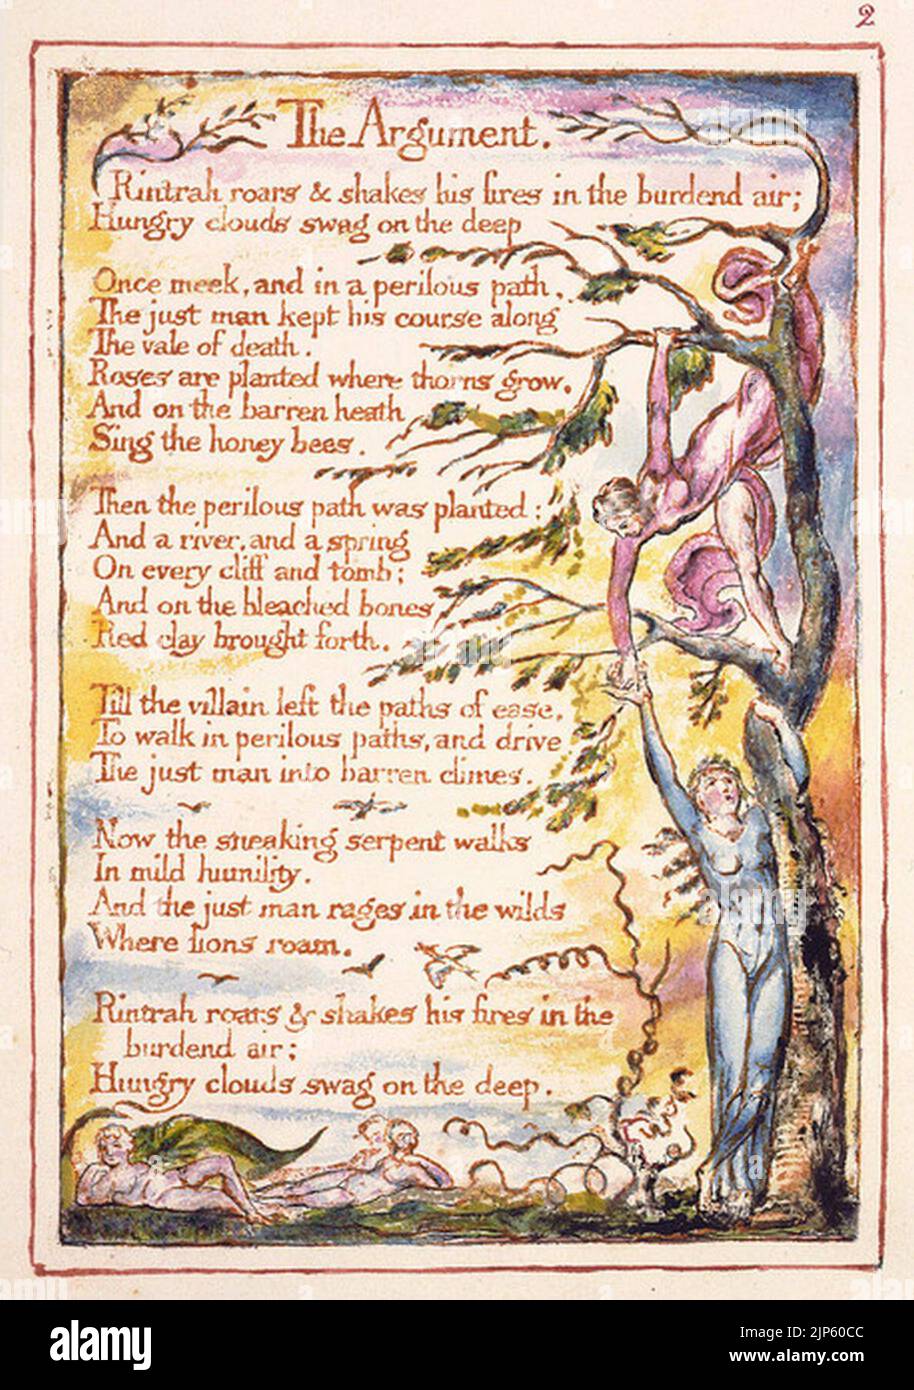 2
The Argument.
Rintrah roars & shakes his fires in the burdend air;
Hungry clouds swag on the deep
Once meek, and in a perilous path,
The just man kept his course along
The vale of death.
Roses are planted where thorns grow,
And on the barren heath
Sing the honey bees.
Then the perilous path was planted:
And a river, and a spring
On every cliff and tomb;
And on the bleached bones
Red clay brought forth.
Till the villain left the paths of ease,
To walk in perilous paths, and drive
The just man into barren climes.
Now the sneaking serpent walks
In mild humility.
And the just man rages in the wilds
Where lions roam.
Rintrah roars & shakes his fires in the
burdend air;
Hungry clouds swag on the deep.
alamy
Image ID: 2JP60CC
www.alamy.com